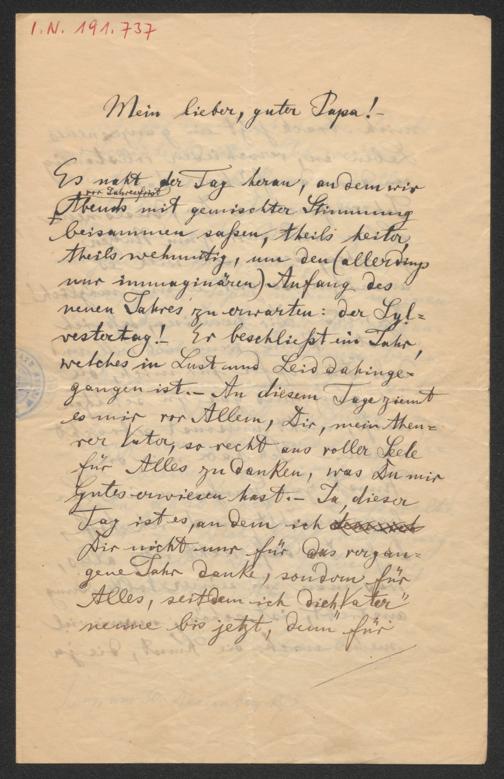 I.N. 191.737
Mein lieber, guter Papa!-
Es naht der Tag heran, an dem wir
vor Jahresfrist
Abends mit gemischter Stimmung
beisammen saßen, theils heiter,
theils wehmutig, um den (allerdings
nur immaginären) Anfang des
neuen Jahres zu erwarten: der Syl=
vestertag!- Er beschließt ein Jahr,
welches in Lust und Leid dahinge-
gangen ist.- An diesem Tage ziemt
es mir vor Allem, Dir, mein theu=
rer Vater, so recht aus voller Seele
für Alles zu danken, was Du mir
Gutes erwiesen hast.- Ja, dieser
Tag ist es, an dem ich
Dir nicht nur für das vergan=
gene Jahr danke, sondern für
Alles, seitdem ich dich „Vater"
nenne bis jetzt, denn für